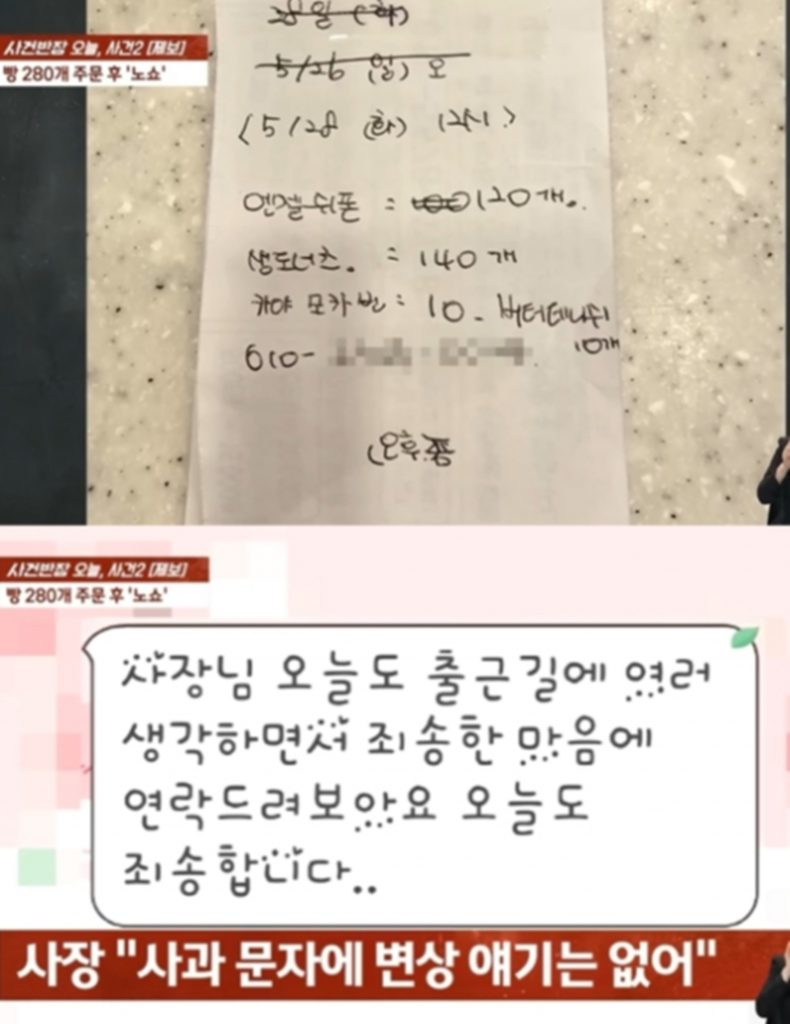 사건반장 오늘, 사건2 [제보]
빵 280개 주문 후 '노쇼'
28일 (화)
5/26 (일) 오
<5/28 (화) 12시>
엔젤쉬폰 : 100 120개.
생도너츠. = 140개
카야 모카번 : 10 - 버터데니쉬
10개
010-
(오후쯤
사건반장 오늘, 사건2 [제보]
빵 280개 주문 후 '노쇼'
사장님 오늘도 출근길에 여러
생각하면서 죄송한 마음에
연락드려보아요 오늘도
죄송합니다..
사장 "사과 문자에 변상 얘기는 없어"